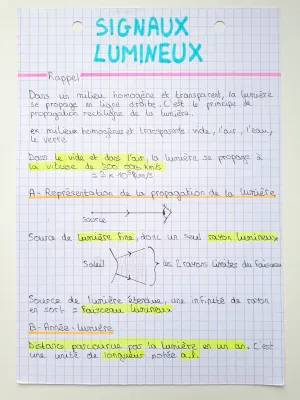 SIGNAUX
LUMINEUX
Rappel
Dans un milieu homogène et transparent, la lumière
se propage en ligne droite. C'est le principe de
propagation rectiligne de la lumière.
ex milieux homogènes et transparents vide, l'air, l'eau,
le verre
Dans le vide et dans l'air, la lumière se propage à
la vitesse de 300 000 km/s
A - Représentation de la propagation de la lumière
source
Source de lumière fine, donc un seul rayon lumineux
Soleil
les 2 rayons limites du faisceau
Source de lumière étendue, une infinité de rayon
en sort = faisceau lumineux
B - Année - lumière
Distance parcourue par la lumière en un an. C'est
une unité de longueur notée a.l.